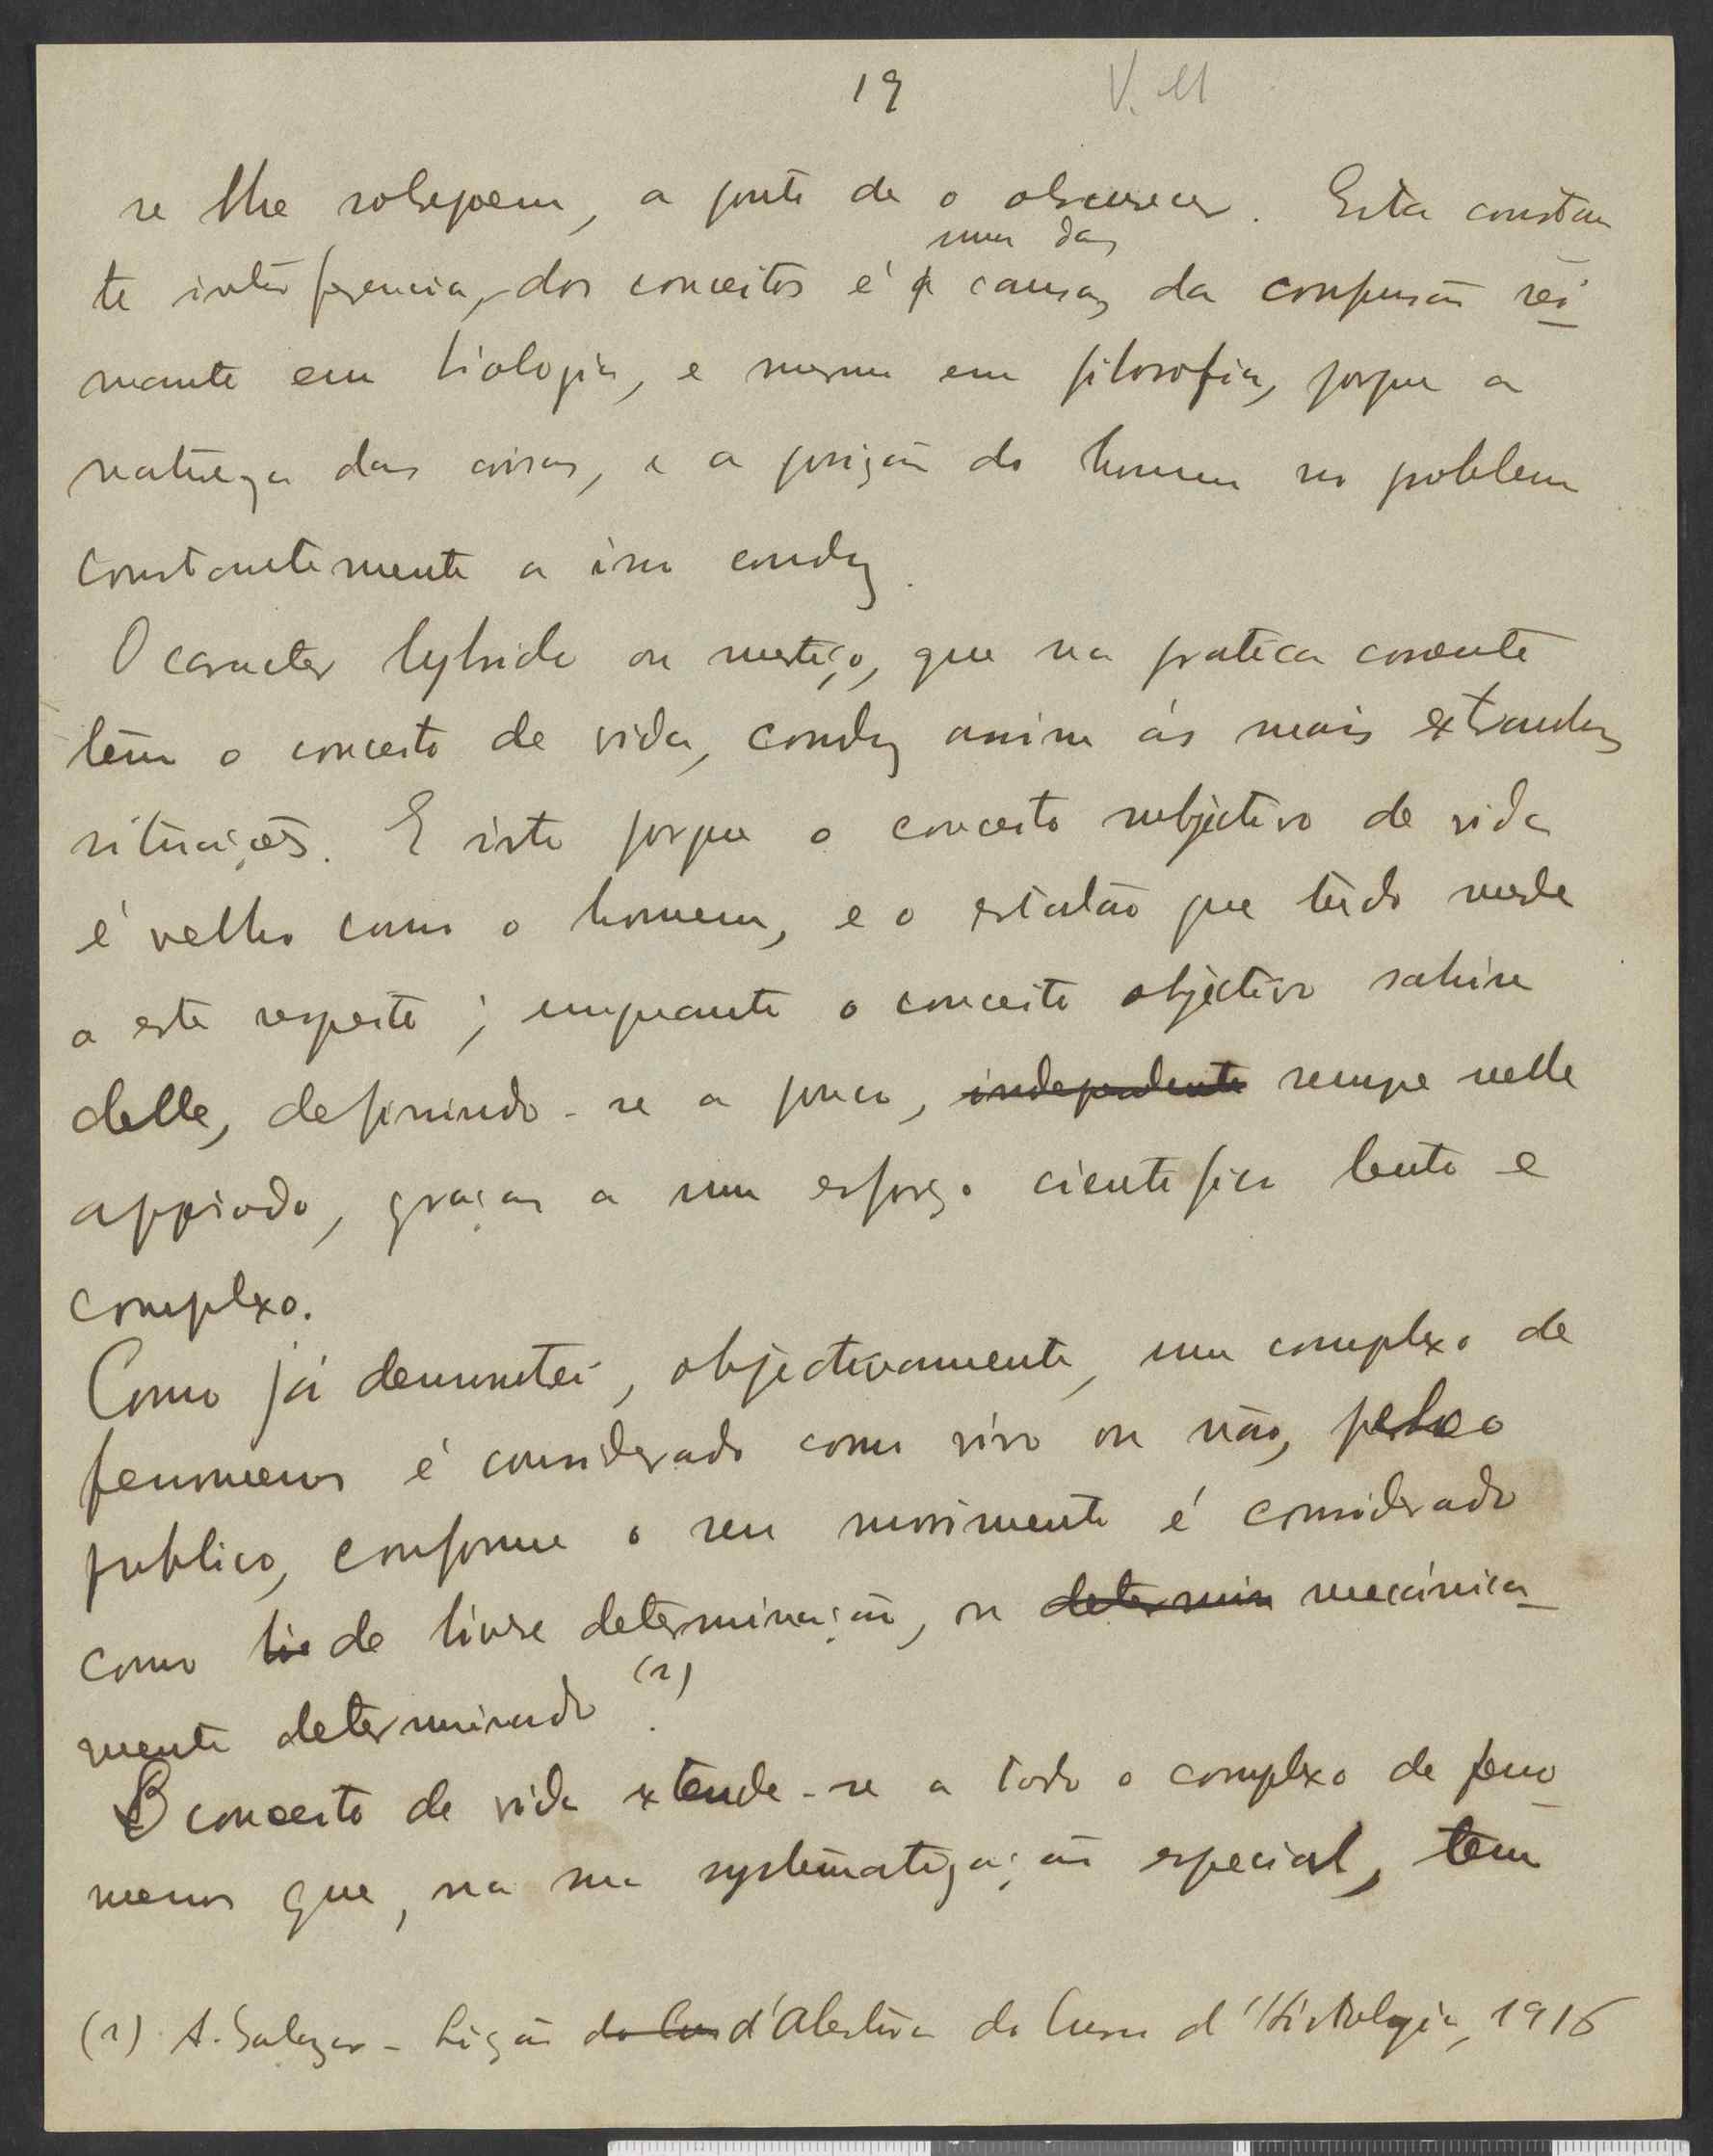 19 V. M
se lhe sobrepoem, a ponto de o obscurecer. Esta constan
uma das
te interferencia, dos conceitos é a causas da confusão rei
nante em biologia, e mesmo em filosofia, porque a
natureza das coisas, e a posição do homem no problema
constantemente a isso conduz.
O caracter hybrido ou mestiço, que na pratica corrente
tem o conceito de vida, conduz assim ás mais extranhas
situações. E isto porque o conceito subjectivo de vida
é velho como o homem, e o estalão que tudo mede
a este respeito; emquanto o conceito objectivo sahiu
delle, definindo-se a pouco, independente sempre nelle
appoiado, graças a um esforço cientifico lento e
complexo.
Como já demonstrei, objectivamente, um complexo de
fenomenos é considerado como vivo ou não, pelo
publico, conforme o seu movimento é considerado
como liv de livre determinação, ou determin mecánica
mente determinado (1).
O conceito de vida extende-se a todo o complexo de feno
menos que, na sua systematização especial, tem
(1) A. Salazar - Lição do Cur d'Abertura do Curso d'Histologia, 1916